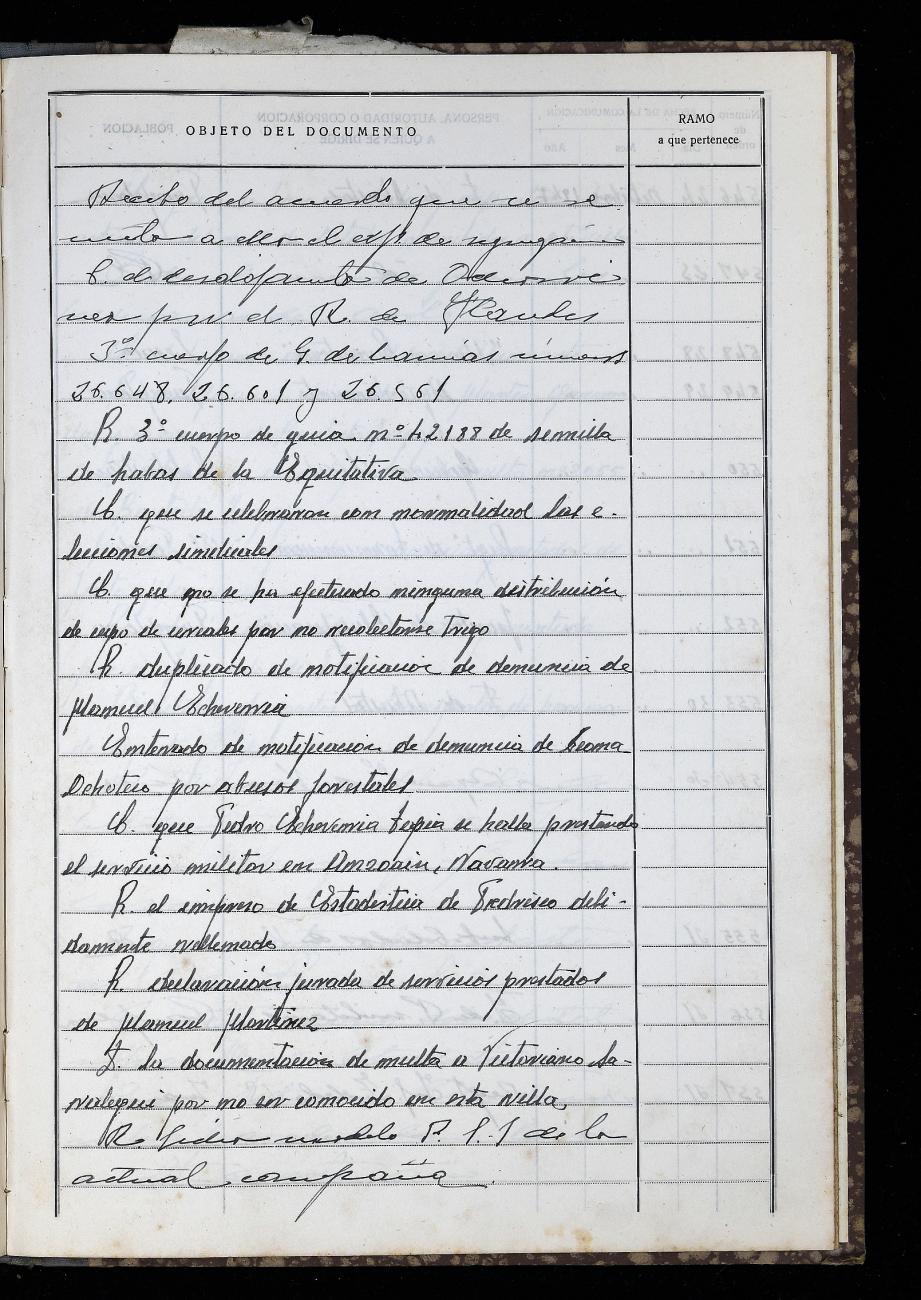 OBJETO DEL DOCUMENTO
RAMO
a que pertenece
Recibo del acuerdo que se re-
mite a
C. el de
por el R. de
3º cuerpo de G. de harinas números
26.648, 26.601 y 26.561
R. 3º cuerpo de guia nº 42188 de semilla
de habas de la Equitativa
C. que se celebraron con normalidad las e-
lecciones sindicales
C. que no se ha efectuado ninguna distribución
de cupo de cereales por no recolectarse Trigo
R. duplicado de notificacion de denuncia de
Manuel Echeverria
Enterado de notificacion de denuncia de
por abusos forestales
C. que Pedro Echeverria Tapia se halla prestando
el servicio militar en Anzoain, Navarra.
R. el impreso de Estadistica de Pedrisco debi-
damente rellenado
R. declaración jurada de servicios prestados
de Manuel Martinez
D. la documentacion de multa a Victoriano Sa-
por no ser conocido en esta villa,
R. modelo P. 1. 1 de la
actual campaña.